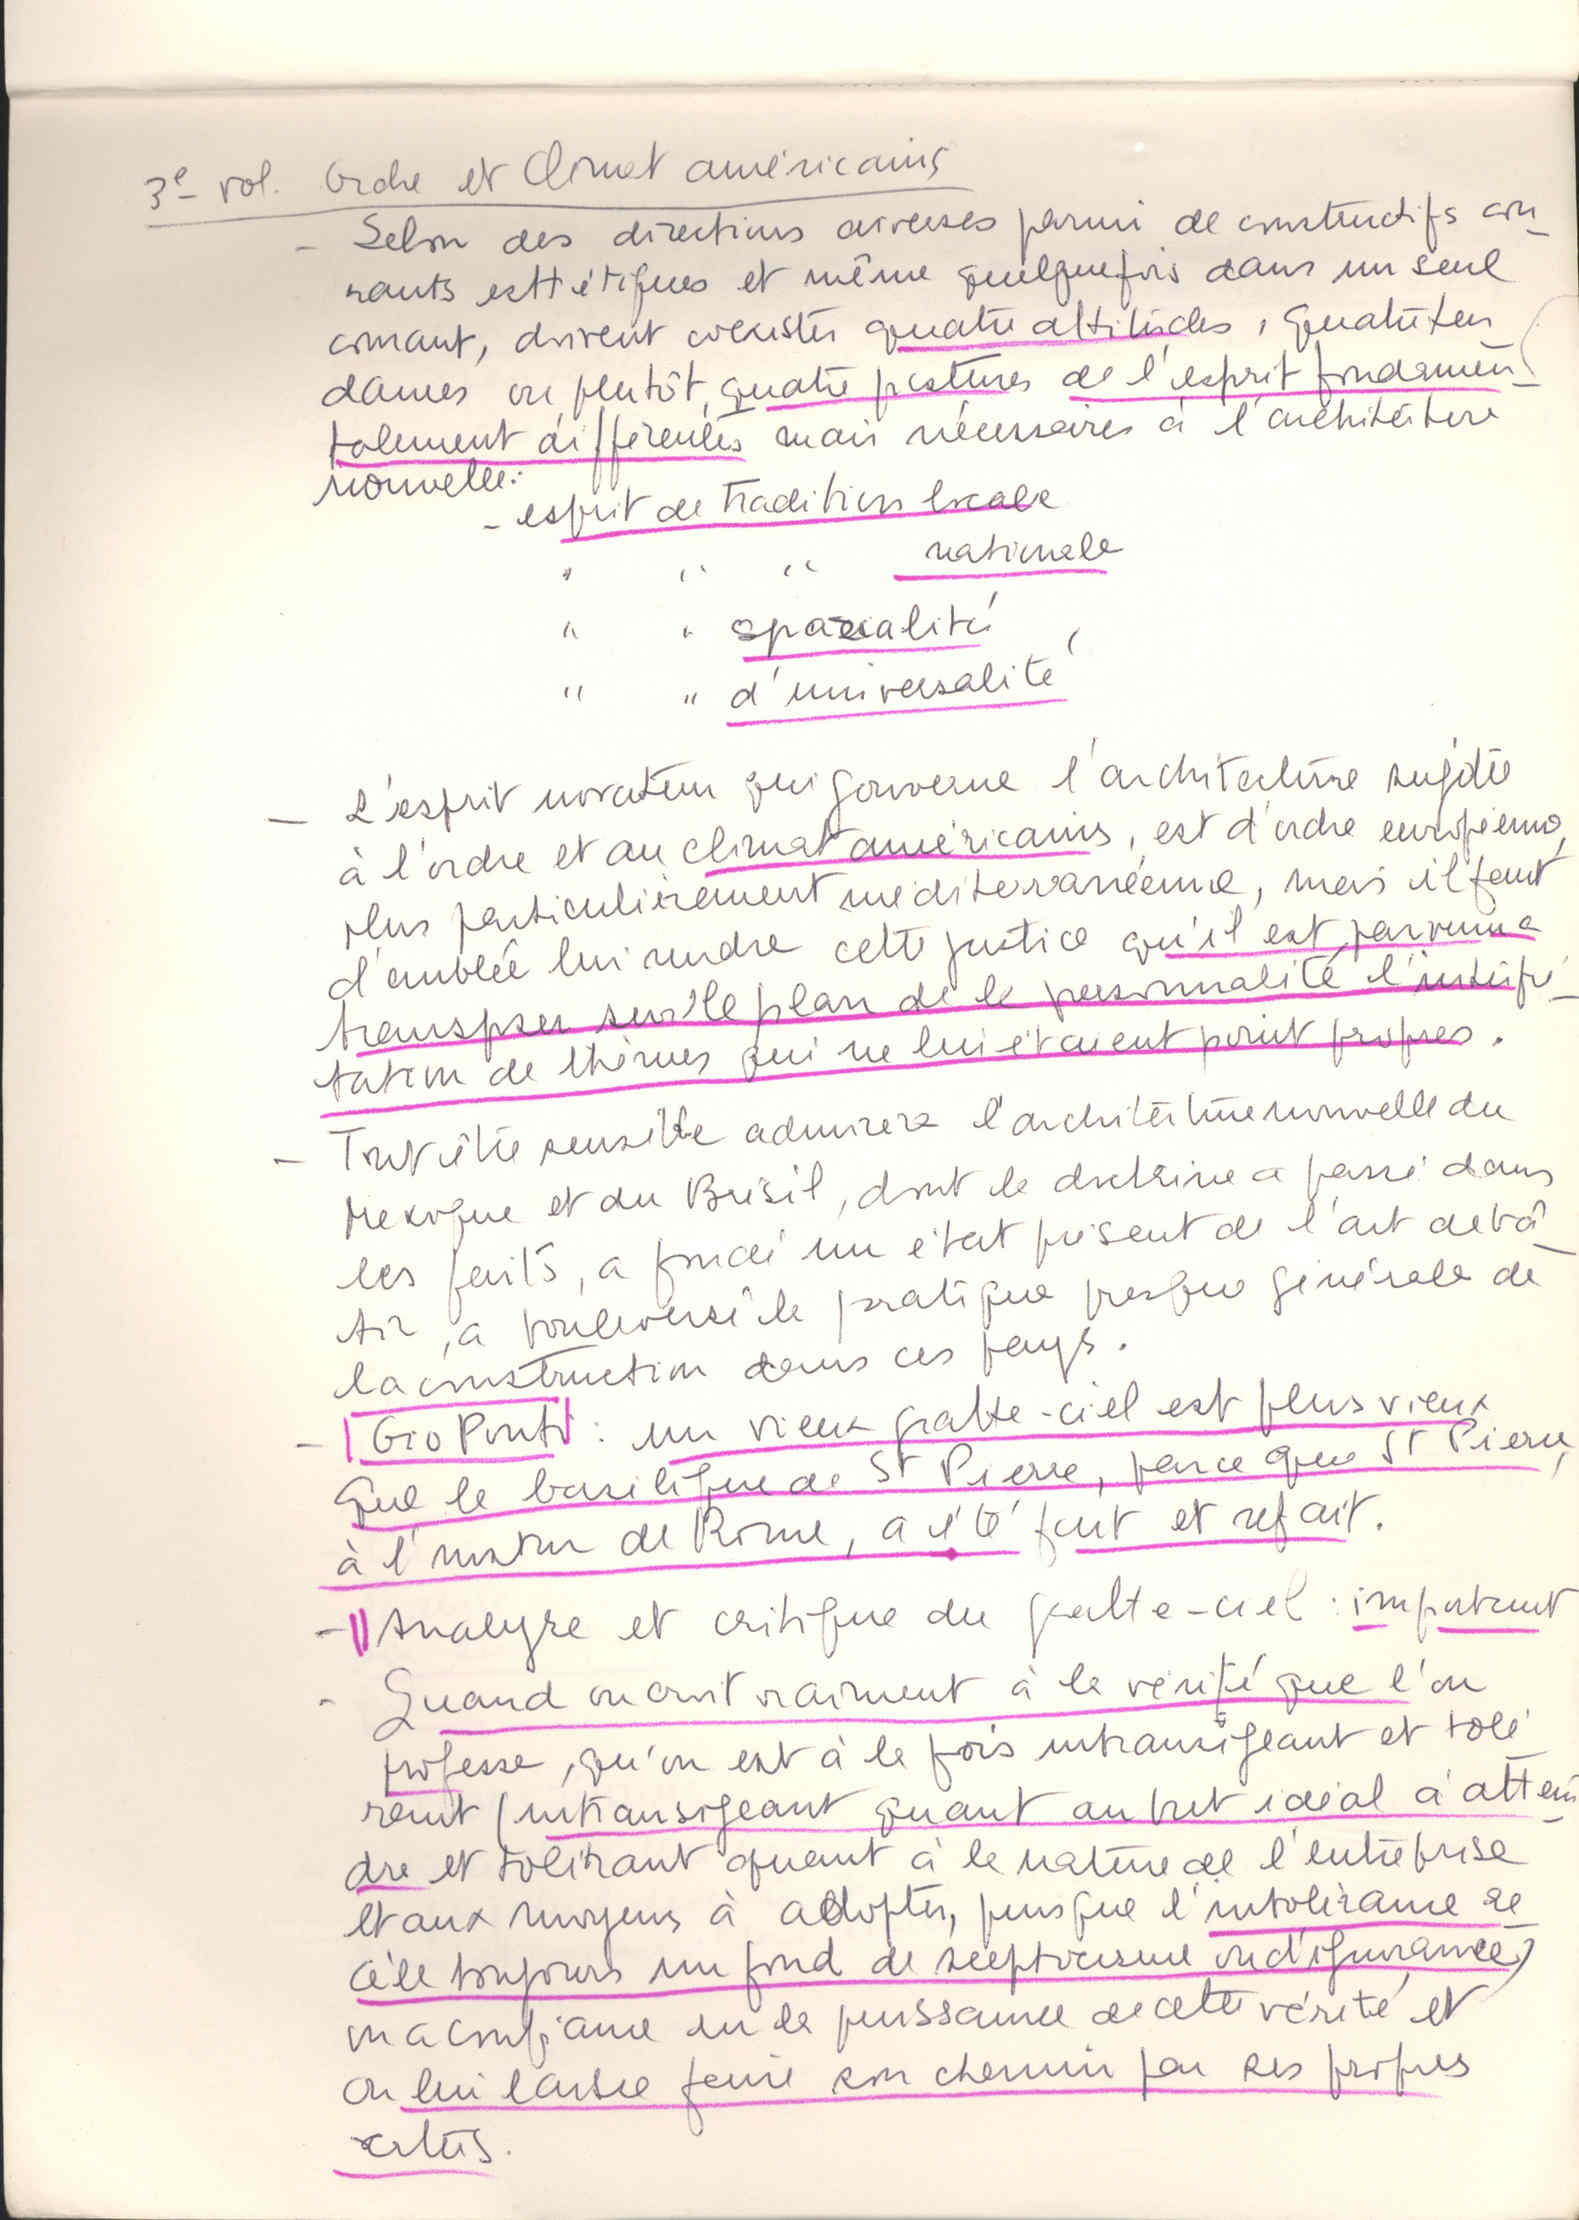 3e vol. Ordre et Climat américains
- Selon des directions diverses parmi de constructifs cou-
rants esthétiques et même quelquefois dans un seul
courant, doivent coexister quatre attitudes, quatre ten
dances ou plutôt, quatre postures de l'esprit fondamen-
talement différentes mais nécessaires à l'architecture
nouvelle:
- esprit de tradition locale
" " " nationale
" " spacialité
" " d'universalité
- L'esprit novateur qui gouverne l'architecture sujette
à l'ordre et au climat américains, est d'ordre européenne,
plus particulièrement méditerranéenne, mais il faut
d'emblée lui rendre cette justice qu'il est parvenu à
transposer sur le plan de la personnalité l'interpré-
tation de thèmes qui ne lui étaient point propres.
- Tout être sensible admirera l'architecture nouvelle du
Mexique et du Brésil, dont la doctrine a passé dans
les faits, a fondé un état présent de l'art de bâ-
tir, a bouleversé la pratique presque générale de
la construction dans ces pays.
- Gio Ponti : un vieux gratte-ciel est plus vieux
que la basilique de St Pierre, parce que St Pierre,
à l'instar de Rome, a été fait et refait.
- Analyse et critique du gratte-ciel : important
- Quand on croit vraiment à la vérité que l'on
professe, qu'on est à la fois intransigeant et tolé
rant (intransigeant quant au but idéal à atten-
dre et tolérant quant à la nature de l'entreprise
et aux moyens à adopter, puisque l'intolérance re
cèle toujours un fond de scepticisme ou d'ignorance)
on a confiance en la puissance de cette vérité et
on lui laisse faire son chemin par ses propres
vertus.